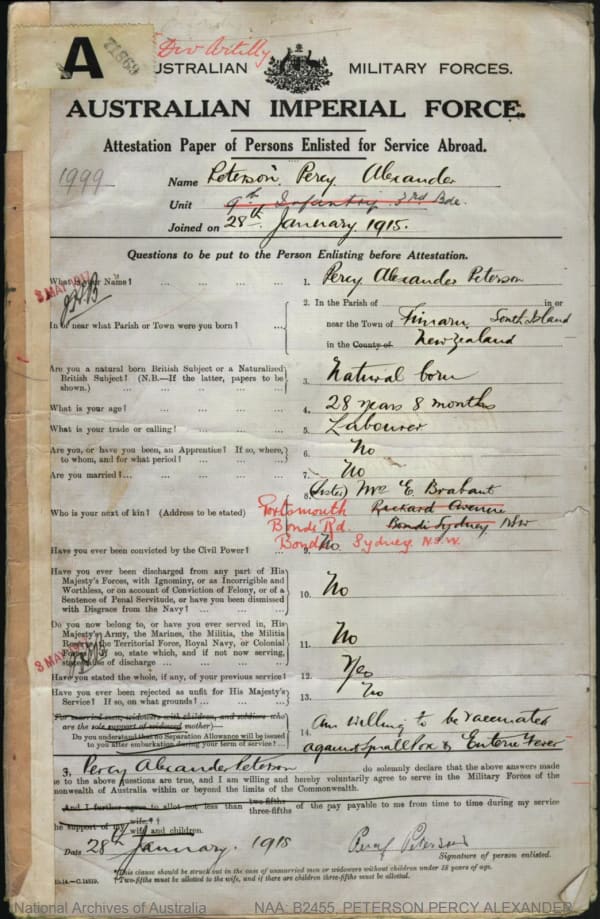 A
71869
Div Artilly
AUSTRALIAN MILITARY FORCES.
AUSTRALIAN IMPERIAL FORCE.
Attestation Paper of Persons Enlisted for Service Abroad.
1999
Name Peterson, Percy Alexander
Unit 9th Infantry 3rd Bde.
Joined on 28th January 1915.
Questions to be put to the Person Enlisting before Attestation.
What is your Name? ... ... ... ... 1. Percy Alexander Peterson
3 MAY
In or near what Parish or Town were you born? ...
2. In the Parish of in or
near the Town of Timaru South Island
in the County of New Zealand
Are you a natural born British Subject or a Naturalized
British Subject? (N.B.—If the latter, papers to be
shown.) 3. Natural born
What is your age? 4. 28 years 8 months
What is your trade or calling? 5. Labourer
Are you, or have you been, an Apprentice? If so, where,
to whom, and for what period? 6. No
Are you married? ... 7. No
8. (Sister) Mrs E. Brabant
Who is your next of kin? (Address to be stated) Portsmouth Packard Avenue
Bondi Rd. Bondi Sydney NSW
Bondi Sydney. N.S.W.
Have you ever been convicted by the Civil Power? 9. No
Have you ever been discharged from any part of His
Majesty's Forces, with Ignominy, or as Incorrigible and
Worthless, or on account of Conviction of Felony, or of a
Sentence of Penal Servitude, or have you been dismissed
with Disgrace from the Navy? 10. No
Do you now belong to, or have you ever served in, His
Majesty's Army, the Marines, the Militia, the Militia
Reserve, the Territorial Force, Royal Navy, or Colonial
Forces? If so, state which, and if not now serving,
state cause of discharge 11. No
3 MAY
Have you stated the whole, if any, of your previous service? 12. Yes
Have you ever been rejected as unfit for His Majesty's
Service? If so, on what grounds? 13. No
For married men, widowers with children, and soldiers who
are the sole support of widowed mother)—
Do you understand that no Separation Allowance will be issued
to you after embarkation during your term of service?
14. Am willing to be vaccinated
against Small Pox & Enteric Fever
I, Percy Alexander Peterson do solemnly declare that the above answers made
me to the above questions are true, and I am willing and hereby voluntarily agree to serve in the Military Forces of the
monwealth of Australia within or beyond the limits of the Commonwealth.
And I further agree to allot not less than two-fifths
three-fifths of the pay payable to me from time to time during my service
the support of my wife.*†
wife and children.
Date 28th January. 1915 Percy Peterson
Signature of person enlisted.
*This clause should be struck out in the case of unmarried men or widowers without children under 18 years of age.
†Two-fifths must be allotted to the wife, and if there are children three-fifths must be allotted.
National Archives of Australia NAA: B2455, PETERSON PERCY ALEXANDER